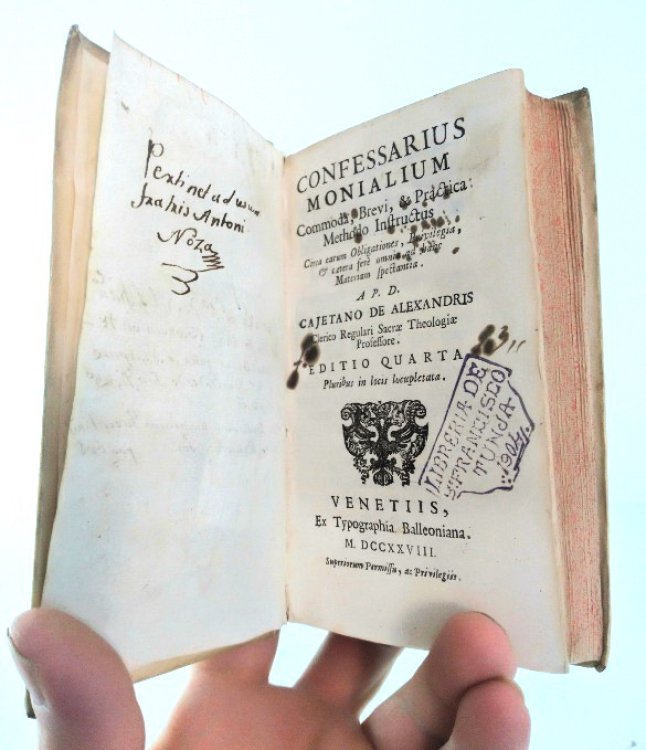 Pertinet ad usum
fratris Antoni
Noza
CONFESSARIUS
MONIALIUM
Commoda, Brevi, & Practica
Methodo Instructus
Circa earum Obligationes, Privilegia,
& cætera ferè omnia ad hanc
Materiam spectantia.
A P. D.
CAJETANO DE ALEXANDRIS
Clerico Regulari Sacræ Theologiæ
Professore.
EDITIO QUARTA
Pluribus in locis locupletata.
LIBRERIA DE
S. FRANCISCO
TUNJA
1904
VENETIIS,
Ex Typographia Balleoniana.
M. DCCXXVIII.
Superiorum Permissu, ac Privilegiis.